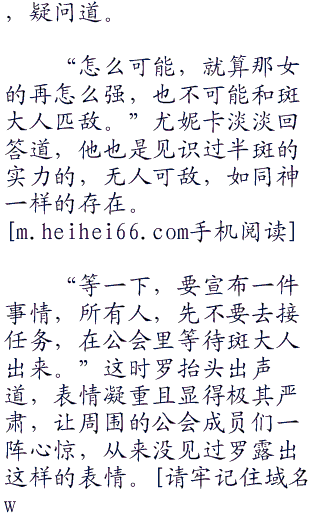 ，疑问道。
“怎么可能，就算那女
的再怎么强，也不可能和斑
大人匹敌。”尤妮卡淡淡回
答道，他也是见识过半斑的
实力的，无人可敌，如同神
一样的存在。
[m.heihei66.com手机阅读]
“等一下，要宣布一件
事情，所有人，先不要去接
任务，在公会里等待斑大人
出来。”这时罗抬头出声
道，表情凝重且显得极其严
肃，让周围的公会成员们一
阵心惊，从来没见过罗露出
这样的表情。[请牢记住域名
w